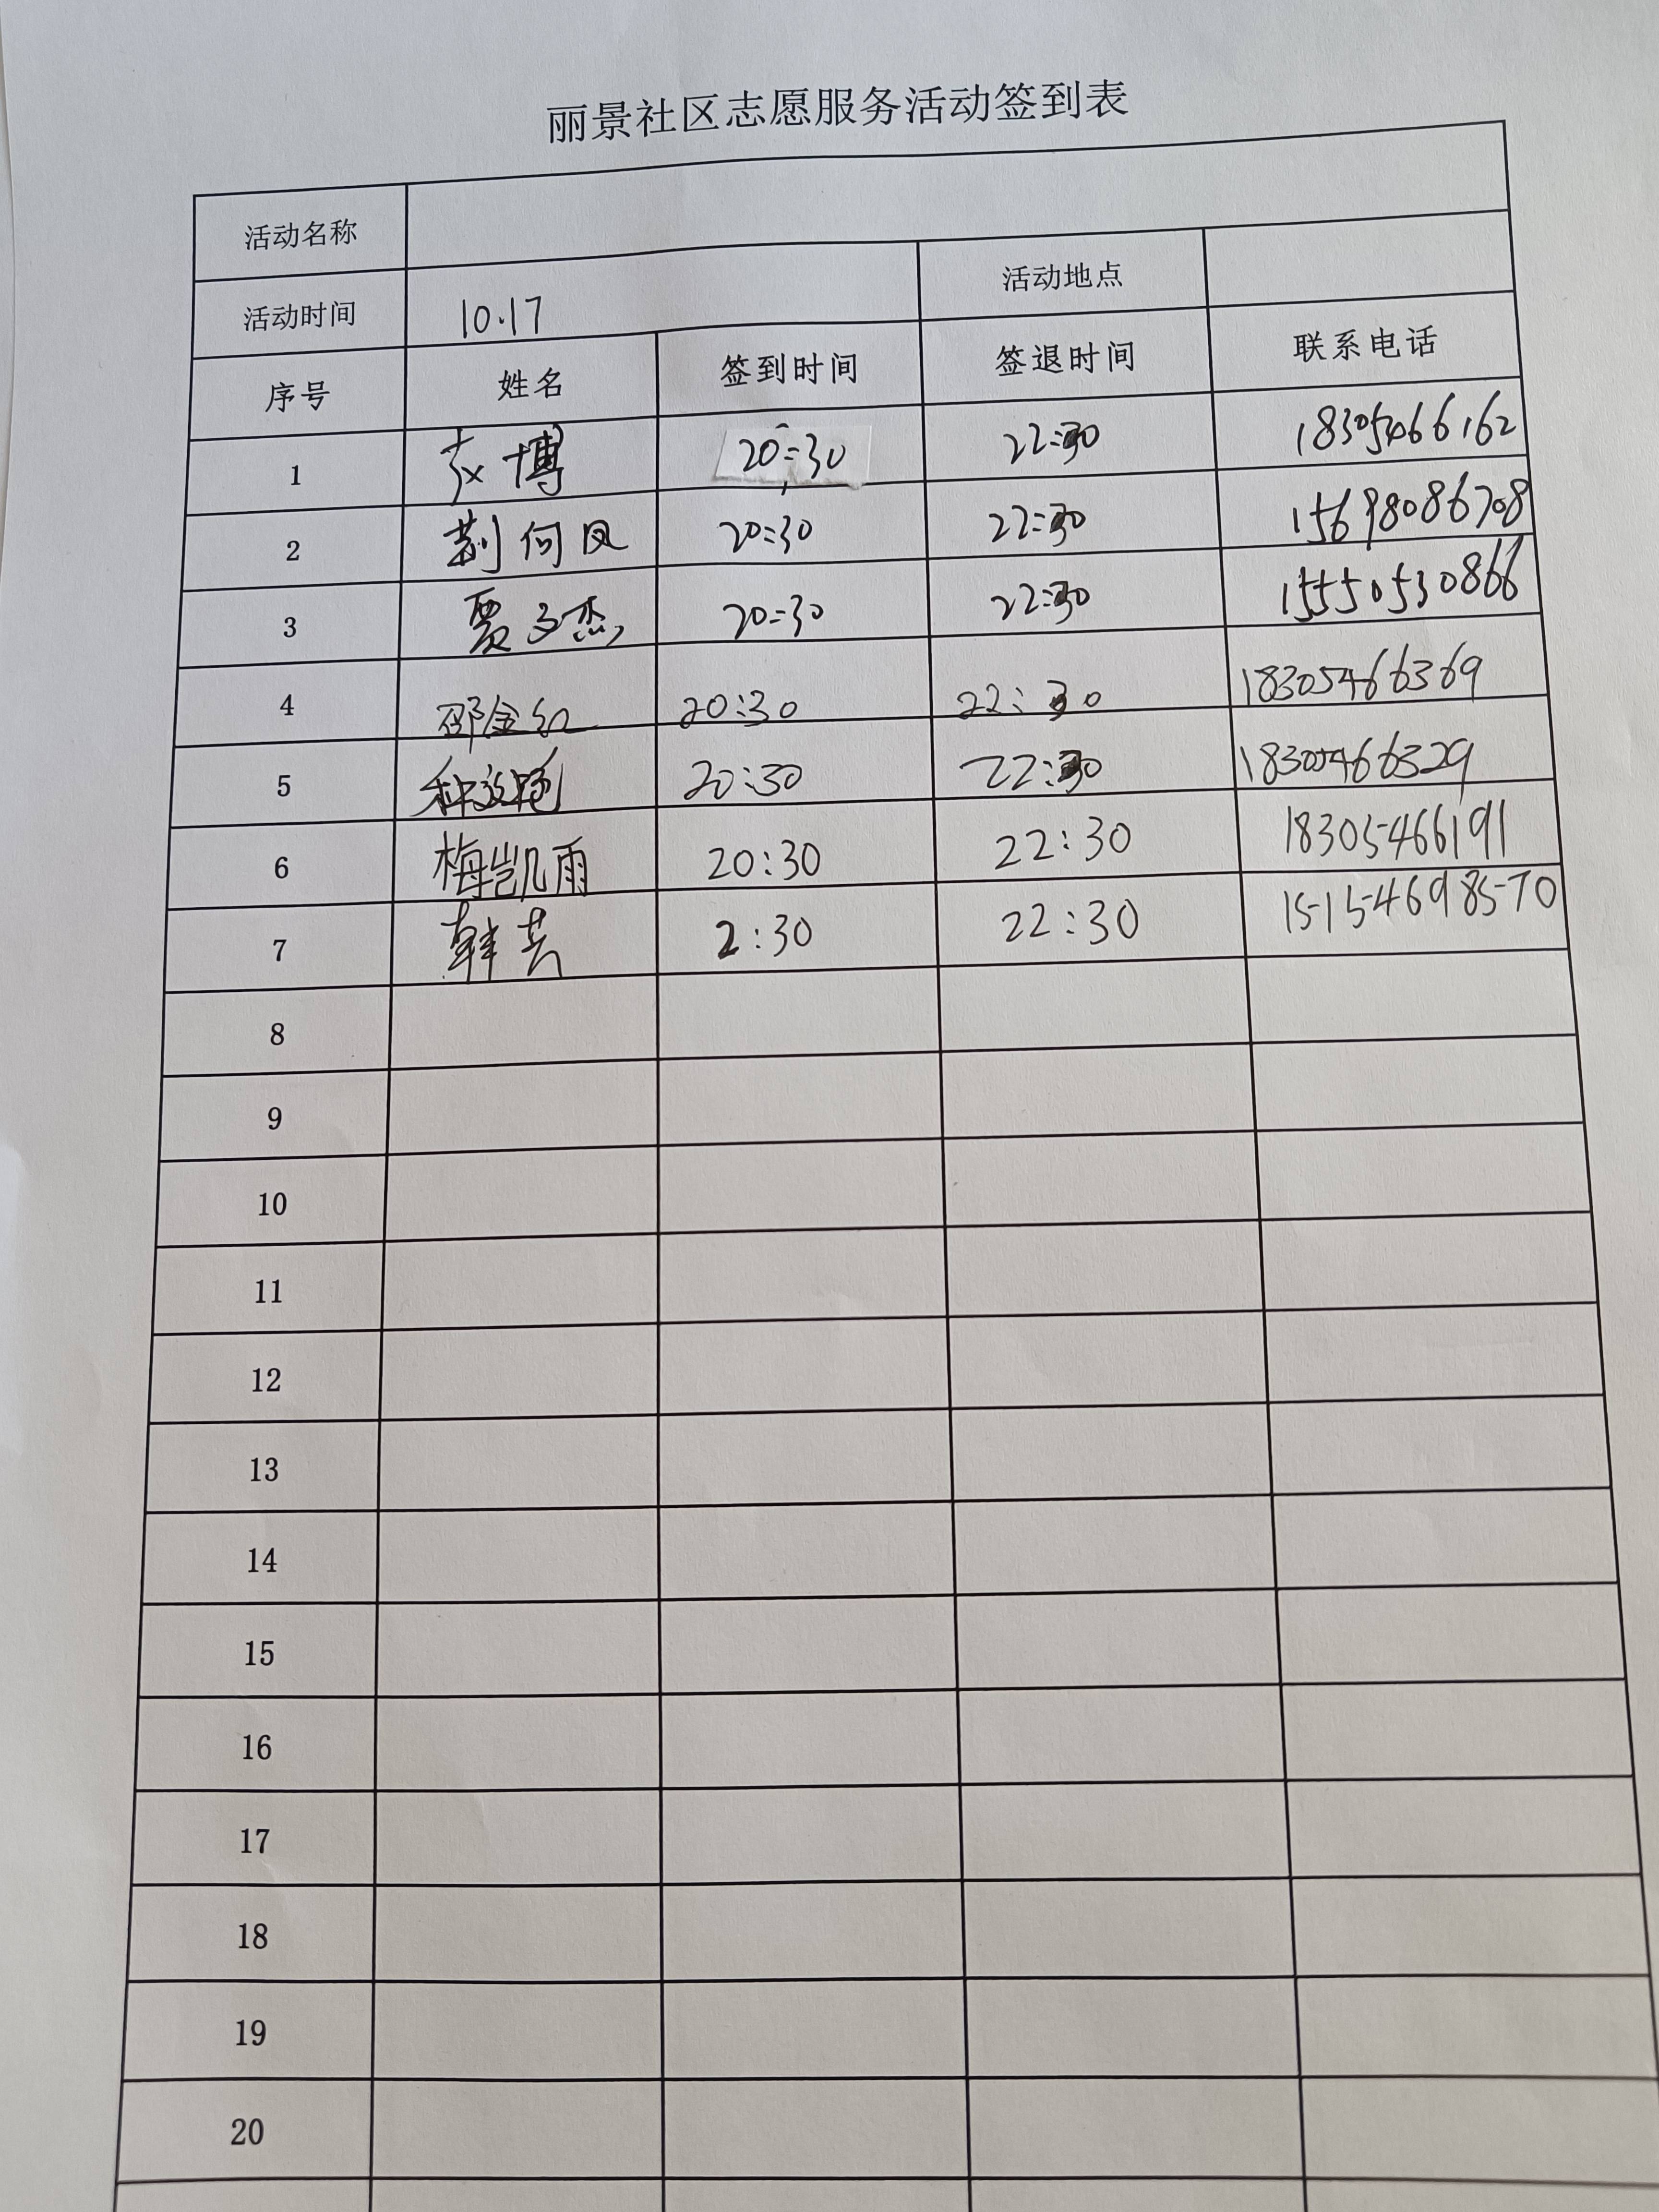 丽景社区志愿服务活动签到表
活动名称
活动时间 10.17 活动地点
序号 姓名 签到时间 签退时间 联系电话
1 赵博 20:30 22:30 18305466162
2 荆何凤 20:30 22:30 15698086708
3 贾文杰 20:30 22:30 15550530866
4 邵金红 20:30 22:30 18305466369
5 种 20:30 22:30 18305466329
6 梅凯雨 20:30 22:30 18305466191
7 韩芸 2:30 22:30 15154698570
8
9
10
11
12
13
14
15
16
17
18
19
20